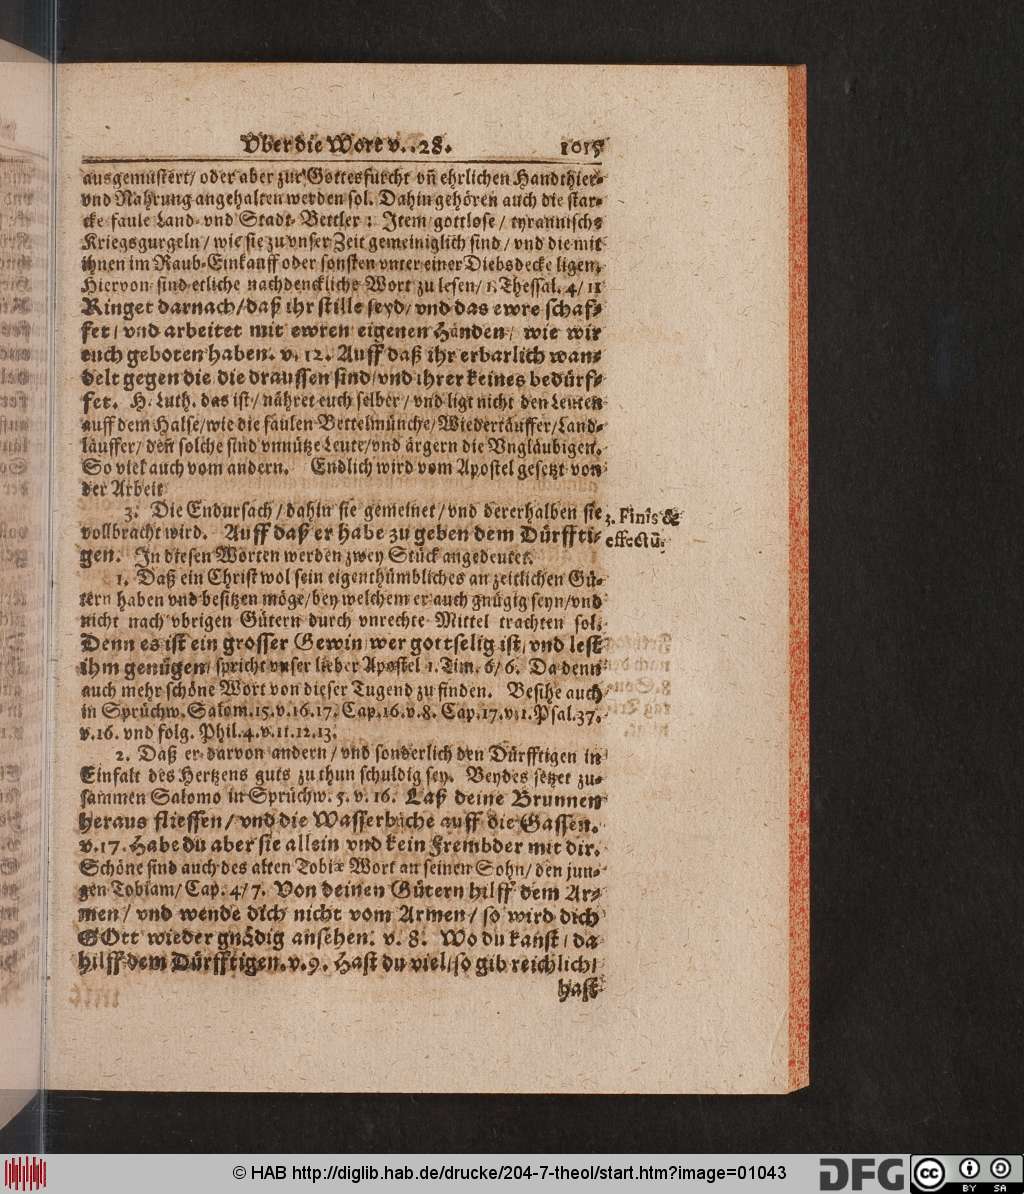 Vber die Wort v. .28. 1015
ausgemustert/ oder aber zur Gottesfurcht vñ ehrlichen Handthier-
vnd Nahrung angehalten werden sol. Dahin gehören auch die star-
cke faule Land- vnd Stadt- Bettler: Item gottlose / tyrannische
Kriegsgurgeln/ wie sie zu vnser Zeit gemeiniglich sind / vnd die mit
ihnen im Raub-Einkauff oder sonsten vnter einer Diebsdecke ligen.
Hiervon sind etliche nachdenckliche Wort zu lesen/ 1. Thessal. 4/ 11
Ringet darnach/ daß ihr stille seyd/ vnd das ewre schaf-
fet/ vnd arbeitet mit ewren eigenen Händen/ wie wir
euch geboten haben. v. 12. Auff daß ihr erbarlich wan-
delt gegen die die draussen sind/ vnd ihrer keines bedürf-
fet. H. Luth. das ist/ nähret euch selber/ vnd ligt nicht den Leuten
auff dem Halse/ wie die faulen Bettelmünche/ Wiedertäuffer/ Land-
läuffer/ deñ solche sind vnnütze Leute/ vnd ärgern die Vngläubigen.
So viel auch vom andern. Endlich wird vom Apostel gesetzt von
der Arbeit
3. Die Endursach/ dahin sie gemeinet/ vnd dererhalben sie
3. Finis &
effectũ.
vollbracht wird. Auff daß er habe zu geben dem Dürffti-
gen. In diesen Worten werden zwey Stück angedeutet.
1. Daß ein Christ wol sein eigenthümbliches an zeitlichen Gü-
tern haben vnd besitzen möge/ bey welchem er auch gnügig seyn/ vnd
nicht nach vbrigen Gütern durch vnrechte Mittel trachten sol.
Denn es ist ein grosser Gewin/ wer gottselig ist/ vnd lest
ihm genügen/ spricht vnser lieber Apostel 1. Tim. 6/ 6. Da denn
auch mehr schöne Wort von dieser Tugend zu finden. Besihe auch
in Sprüchw. Salom. 15. v. 16. 17. Cap. 16. v. 8. Cap. 17. v. 1. Psal. 37.
v. 16. vnd folg. Phil. 4. v. 11. 12. 13.
2. Daß er darvon andern/ vnd sonderlich den Dürfftigen in
Einfalt des Hertzens guts zu thun schuldig sey. Beydes setzet zu-
sammen Salomo in Sprüchw. 5. v. 16. Laß deine Brunnen
heraus fliessen/ vnd die Wasserbäche auff die Gassen.
v. 17. Habe du aber sie allein vnd kein Frembder mit dir.
Schöne sind auch des alten Tobiæ Wort an seinen Sohn/ den jun-
gen Tobiam/ Cap. 4/ 7. Von deinen Gütern hilff dem Ar-
men/ vnd wende dich nicht vom Armen/ so wird dich
GOtt wieder gnädig ansehen. v. 8. Wo du kanst/ da
hilff dem Dürfftigen. v. 9. Hast du viel/ so gib reichlich/
hast
© HAB http://diglib.hab.de/drucke/204-7-theol/start.htm?image=01043
DFG
cc BY SA